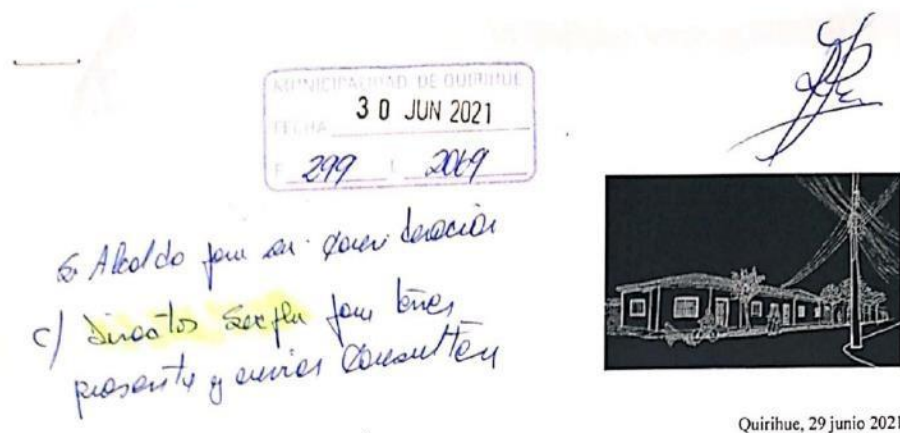 MUNICIPALIDAD DE QUIRIHUE
30 JUN 2021
FECHA
F 299 L 2069
Sr Alcalde para su consideración
c) Director Secpla para tener
presente y enviar
Quirihue, 29 junio 2021